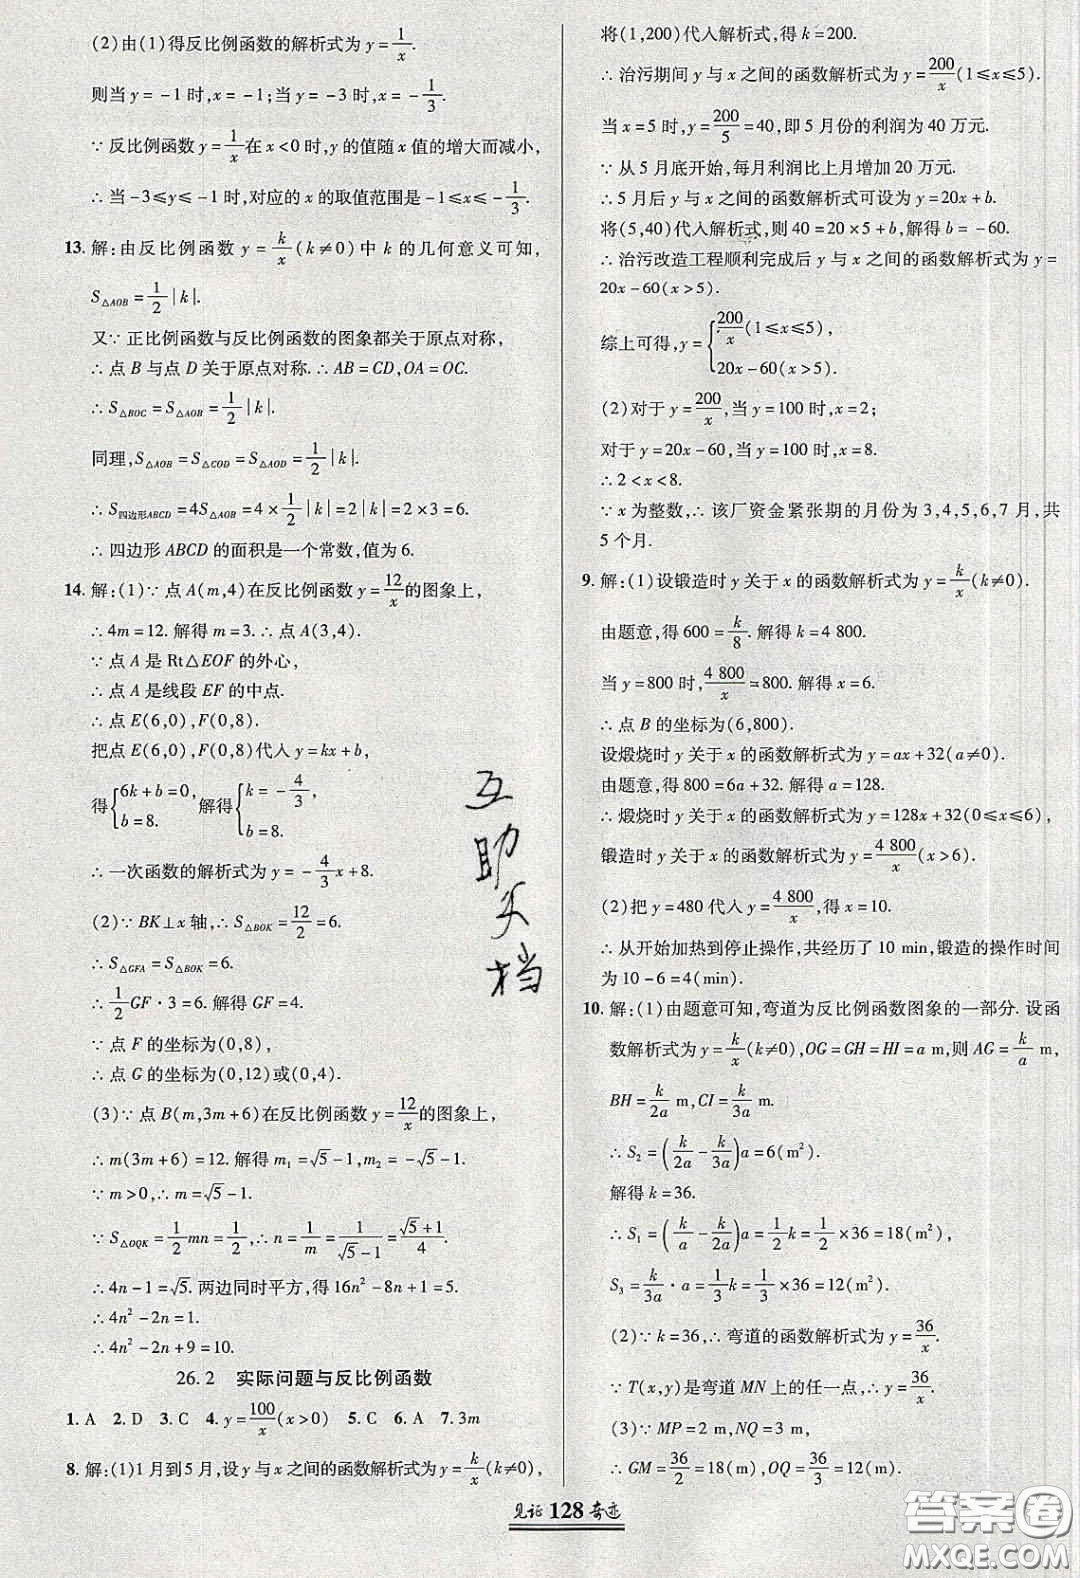 (2)由(1)得反比例函数的解析式为 y=1/x.
则当 y=-1时,x=-1;当 y=-3时,x=-1/3.
∵反比例函数 y=1/x在 x<0时,y的值随 x值的增大而减小,
∴当-3≤y≤-1时,对应的 x的取值范围是-1≤x≤-1/3.
13. 解:由反比例函数 y=k/x(k≠0)中 k的几何意义可知,
S△AOB=1/2|k|.
又∵正比例函数与反比例函数的图象都关于原点对称,
∴点 B与点 D关于原点对称.∴AB=CD,OA=OC.
∴S△BOC=S△AOB=1/2|k|.
同理,S△AOB=S△COD=S△AOD=1/2|k|.
∴S四边形ABCD=4S△AOB=4×1/2|k|=2|k|=2×3=6.
∴四边形 ABCD的面积是一个常数,值为6.
14. 解:(1)∵点 A(m,4)在反比例函数 y=12/x的图象上,
∴4m=12.解得 m=3.∴点 A(3,4).
∵点 A是 Rt△EOF的外心,
∴点 A是线段 EF的中点.
∴点 E(6,0),F(0,8).
把点 E(6,0),F(0,8)代入 y=kx+b,
得{6k+b=0, b=8. 解得{k=-4/3, b=8.
∴一次函数的解析式为 y=-4/3x+8.
(2)∵BK⊥x轴,∴S△BOK=12/2=6.
∴S△GFA=S△BOK=6.
∴1/2GF·3=6.解得 GF=4.
∵点 F的坐标为(0,8),
∴点 G的坐标为(0,12)或(0,4).
(3)∵点 B(m,3m+6)在反比例函数 y=12/x的图象上,
∴m(3m+6)=12.解得 m₁=√5-1,m₂=-√5-1.
∵m>0,∴m=√5-1.
∵S△OQK=1/2mn=1/2,∴n=1/m=1/(√5-1)=(√5+1)/4.
∴4n-1=√5.两边同时平方,得16n²-8n+1=5.
∴4n²-2n=1.
∴4n²-2n+9=10.
26.2 实际问题与反比例函数
1. A 2. D 3. C 4. y=100/x(x>0) 5. C 6. A 7. 3m
8. 解:(1)1月到5月,设 y与 x之间的函数解析式为 y=k/x(k≠0),
将(1,200)代入解析式,得 k=200.
∴治污期间 y与 x之间的函数解析式为 y=200/x(1≤x≤5).
当 x=5时,y=200/5=40,即5月份的利润为40万元.
∵从5月底开始,每月利润比上月增加20万元.
∴5月后 y与 x之间的函数解析式可设为 y=20x+b.
将(5,40)代入解析式,则40=20×5+b,解得 b=-60.
∴治污改造工程顺利完成后 y与 x之间的函数解析式为 y=
20x-60(x>5).
综上可得,y={200/x(1≤x≤5), 20x-60(x>5).
(2)对于 y=200/x,当 y=100时,x=2;
对于 y=20x-60,当 y=100时,x=8.
∴2<x<8.
∵x为整数,∴该厂资金紧张期的月份为3,4,5,6,7月,共
5个月.
9. 解:(1)设锻造时 y关于 x的函数解析式为 y=k/x(k≠0).
由题意,得600=k/8.解得 k=4 800.
当 y=800时,4 800/x=800.解得 x=6.
∴点 B的坐标为(6,800).
设煅烧时 y关于 x的函数解析式为 y=ax+32(a≠0).
由题意,得800=6a+32.解得 a=128.
∴煅烧时 y关于 x的函数解析式为 y=128x+32(0≤x≤6),
锻造时 y关于 x的函数解析式为 y=4 800/x(x>6).
(2)把 y=480代入 y=4 800/x,得 x=10.
∴从开始加热到停止操作,共经历了10 min,锻造的操作时间
为10-6=4(min).
10. 解:(1)由题意可知,弯道为反比例函数图象的一部分.设函
数解析式为 y=k/x(k≠0),OG=GH=HI=a m,则 AG=k/a m,
BH=k/2a m,CI=k/3a m.
∴S₂=(k/2a-k/3a)a=6(m²).
解得 k=36.
∴S₁=(k/a-k/2a)a=1/2k=1/2×36=18(m²),
S₃=k/3a·a=1/3k=1/3×36=12(m²).
(2)∵k=36,∴弯道的函数解析式为 y=36/x.
∵T(x,y)是弯道 MN上的任一点,∴y=36/x.
(3)∵MP=2 m,NQ=3 m,
∴GM=36/2=18(m),OQ=36/3=12(m).
互
助
文
档
见证128奇迹
答案圈
MXQE.COM